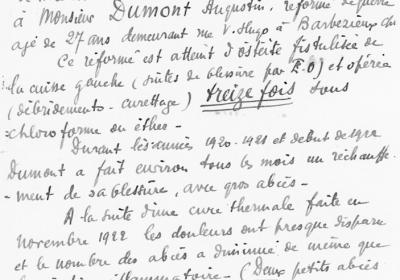 à Monsieur Dumont Augustin, réformé de guerre
agé de 27 ans demeurant rue V. Hugo à Barbezieux
Ce réformé est atteint d'ostéite fistulisée de
la cuisse gauche (suites de blessure par E.O) et opéré
(débridements - curettage) treize fois sous
chloroforme ou éther -
Durant les années 1920-1921 et début de 1922
Dumont a fait environ tous les mois un réchauffe-
-ment de sa blessure, avec gros abcès -
A la suite d'une cure thermale faite en
novembre 1922 les douleurs ont presque disparu
et le nombre des abcès a diminué de même que
(Deux petits abcès